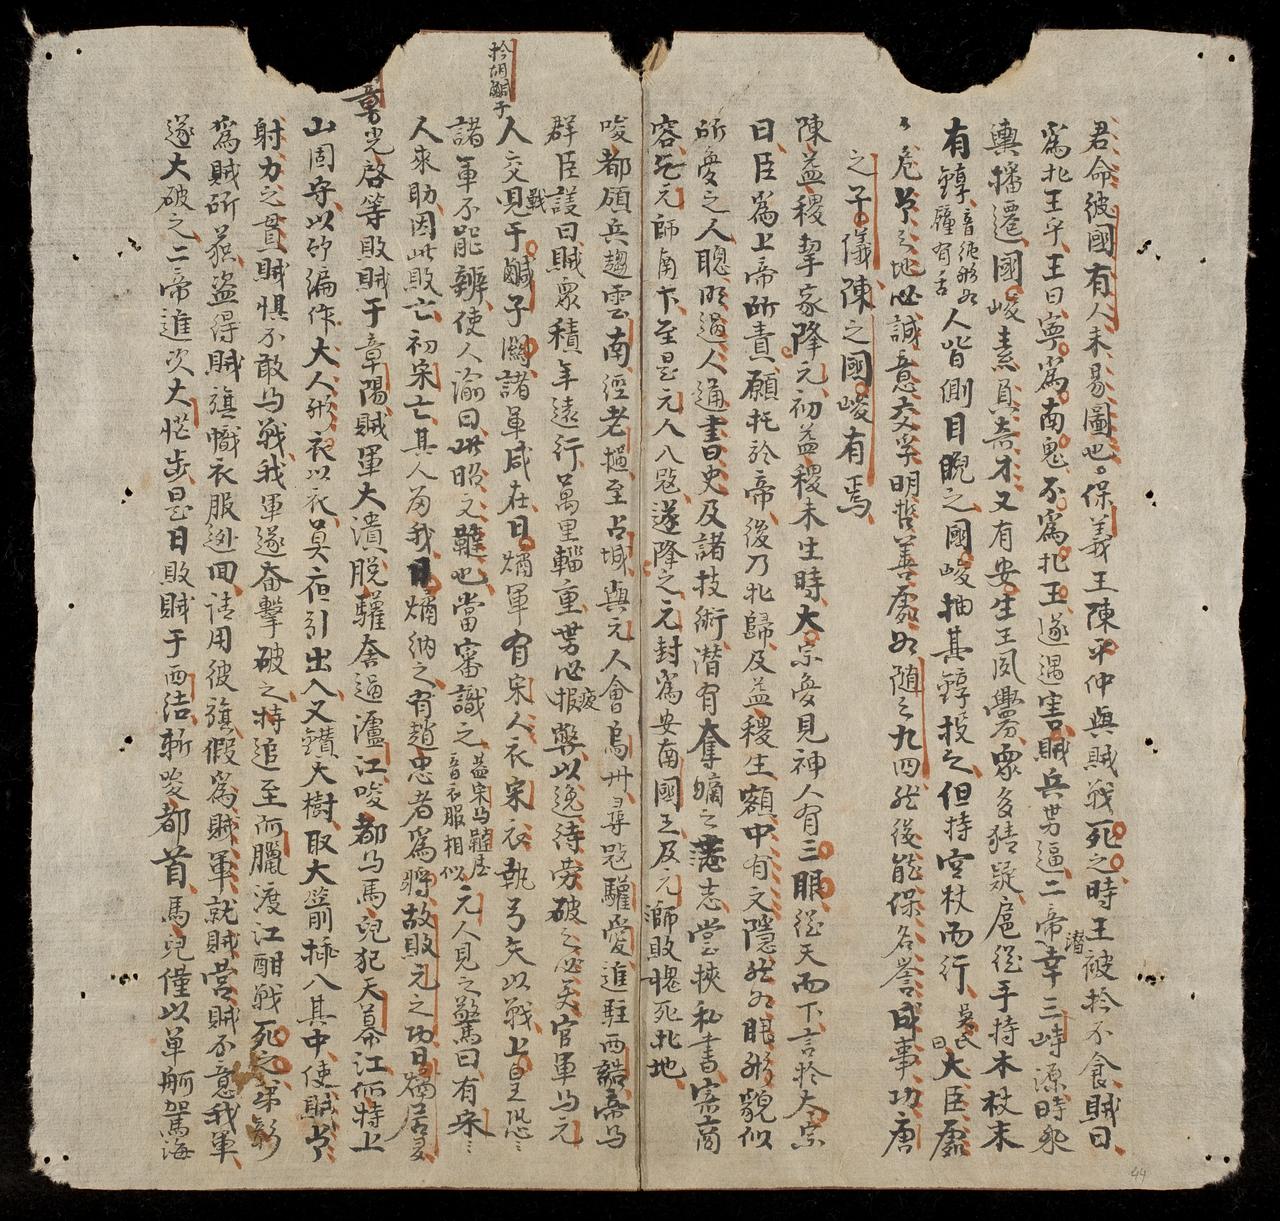 君命彼國有人未易圖也保義王陳平仲與賊戰死之時王被擒不食賊曰
爲北王乎王曰寧爲南鬼不爲北王遂遇害賊兵勢逼二帝潛幸三峙源時乘
輿播遷國峻素負奇才又有安生王夙釁眾多猜疑扈從手持木杖末
有錞音純形如鐘有舌人皆側目睨之國峻抽其錞投之但持空杖而行吳氏曰大臣處
〻危𠂉之地必誠意交孚明哲善處如隨之九四然後能保名譽成事功唐
之子儀陳之國峻有焉
陳益稷挈家降元初益稷未生時太宗夢見神人有三眼從天而下言於太宗
曰臣爲上帝所責願托於帝後乃北歸及益稷生額中有文隱然如眼形貌似
所愛之人聰明過人通書史及諸技術潛有奪嫡之志嘗挾私書寄商
容乞元師南下至是元人入寇遂降之元封爲安南國王及元師敗愧死北地
唆都領兵趨雲南經老撾至占城與元人會烏州尋寇驩愛進駐西結帝與
群臣議曰賊眾積年遠行万里輜重勢必疲獘以逸待勞破之必矣官軍与元
擒胡鹹子
人交戰于鹹子關諸軍咸在日燏軍有宋人衣宋衣執弓矢以戰上皇恐
諸軍不能辨使人諭曰此昭文韃也當審識之蓋宋与韃声音衣服相似元人見之驚曰有宋〻
人來助因此敗亡初宋亡其人多歸我日燏納之有趙忠者爲將故敗元之功日燏居多
章光啓等敗賊于章陽賊軍大潰脫驩奔過瀘江唆都与馬兒犯天幕江仍特上
山固守以竹編作大人形衣以衣昃夜引出入又鑽大樹取大箭插入其中使賊𠂉
射力之貫賊懼不敢与戰我軍遂奮擊破之特追至而臘渡江酣戰死之弟彰
爲賊所獲盜得賊旗幟衣服逃回請用彼旗假爲賊軍就賊營賊不意我軍
遂大破之二帝進次大忙步是日敗賊于西結斬唆都首馬兒僅以單舸駕海
44